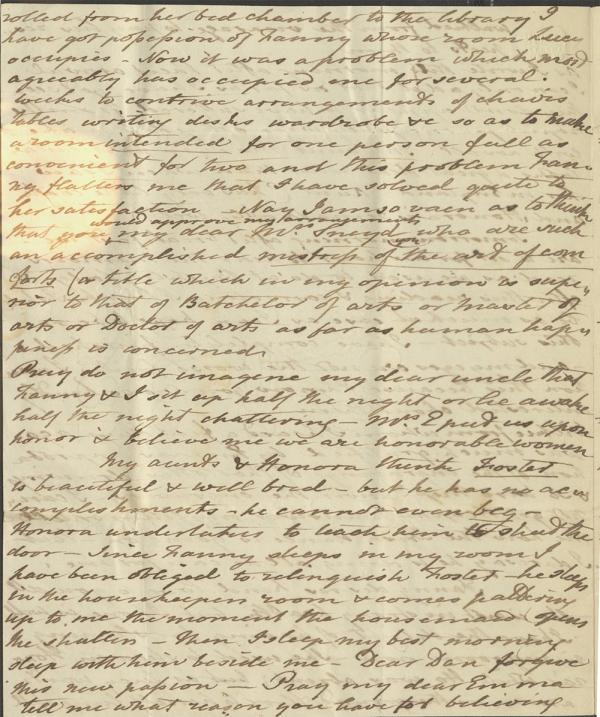 rolled from her bed chamber to the library I
have got possession of Fanny whose room Lucy
occupies - Now it was a problem which most
agreeably has occupied me for several
weeks to contrive arrangements of chairs
tables writing desks wardrobe &c so as to make
a room intended for one person full as
convenient for two and this problem Fan-
ny flatters me that I have solved quite to
her satisfaction - Nay I am so vain as to think
would approve my arrangements
that you my dear Mrs Sneyd who are such
an accomplished mistress of the art of com
forts (a title which in my opinion is supe-
rior to that of Batchelor of arts or Master of
arts or Doctor of arts as far as human hap-
piness is concerned
Pray do not imagine my dear uncle that
Fanny & I sit up half the night or lie awake
half the night chattering - Mrs E put us upon
honor & believe me we are honorable women
My aunts & Honora think Foster
is beautiful & well bred - but he has no ac-
complishments - he cannot even beg -
Honora undertakes to teach him to shut the
door - Since Fanny sleeps in my room I
have been obliged to relinquish Foster - he sleeps
in the housekeepers room & comes pattering
up to me the moment the housemaid opens
the shutters - Then I sleep my best morning
sleep with him beside me - Dear Dan forgive
this new passion - Pray my dear Emma
tell me what reason you have for believing